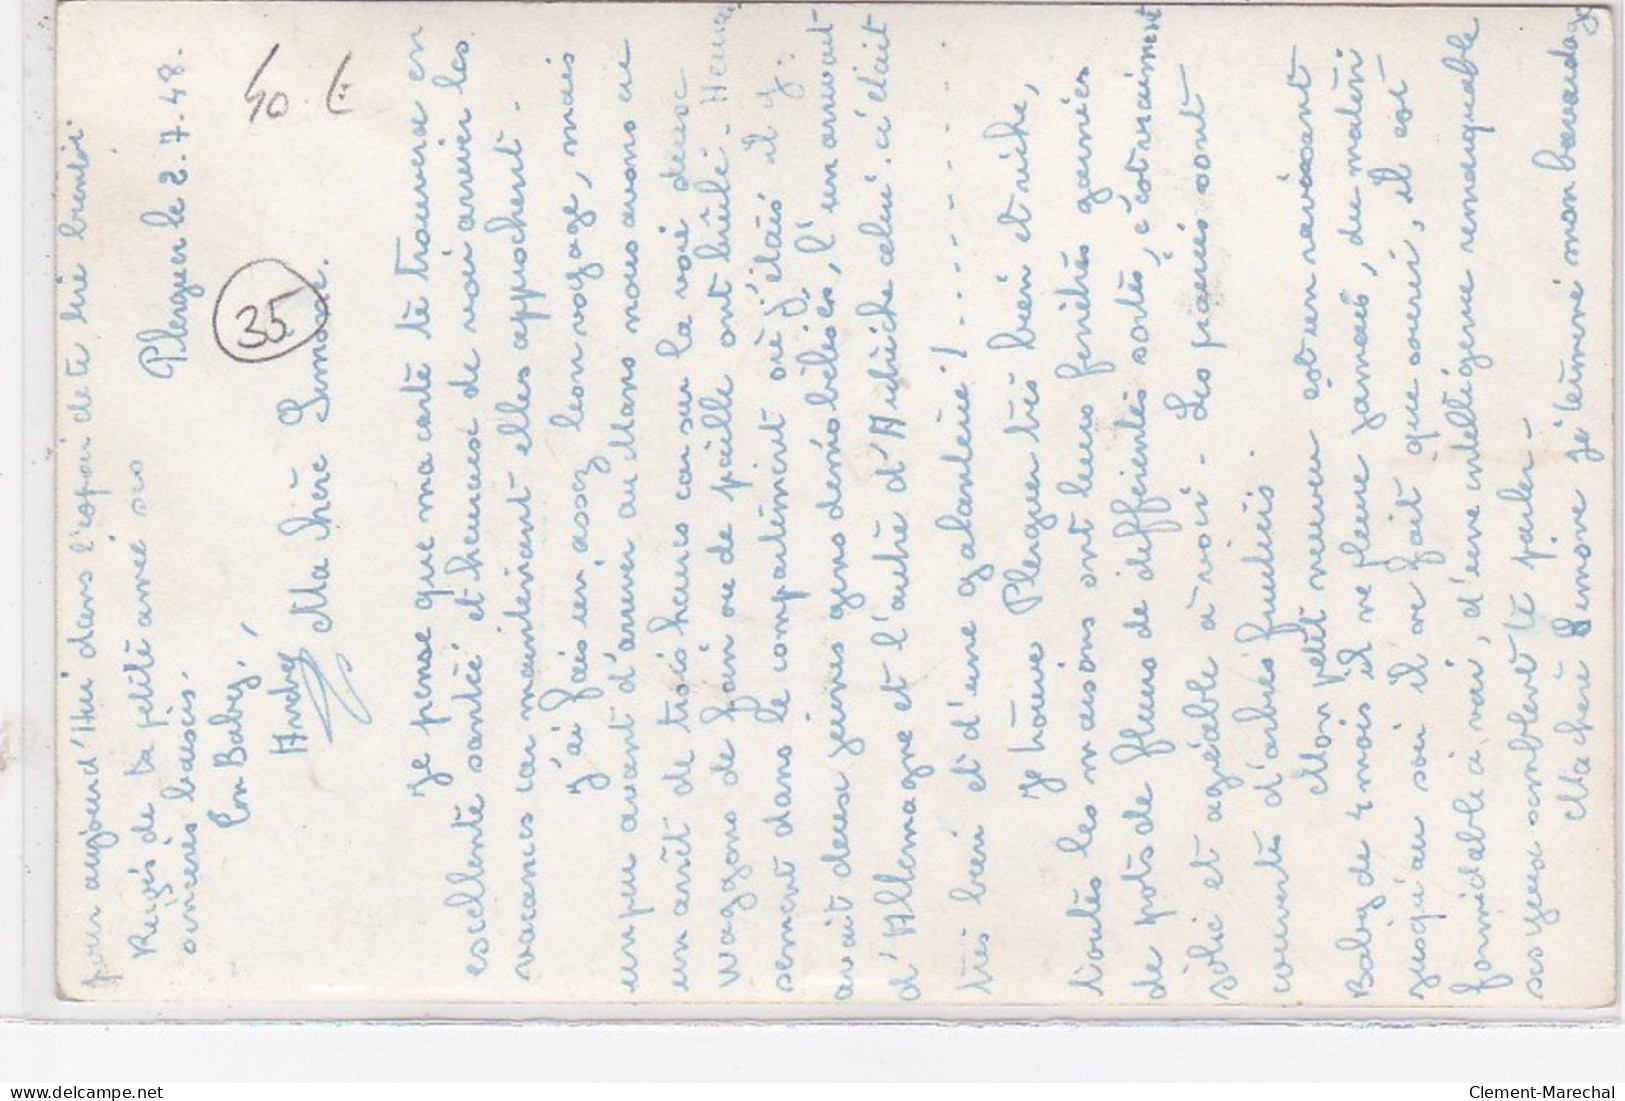 Plerguer le 2.7.48.
40 E
35
Ma chèr Simone.
Je pense que ma carte te trouvera en
excellente santée et heureuse de voir arriver les
vacances car maintenant elles approchent.
J'ai fais un assez bon voyage, mais
un peu avant d'arriver au Mans nous avons eu
un arrêt de trois heures car sur la voie deux
waggons de foin ou de paille ont brûlé. Heureu
sement dans le compartiment où j'étais il y
avait deux jeunes gens démobilisés, l'un arrivait
d'Allemagne et l'autre d'Autriche celui-ci était
très bien et d'une galanterie!
Je trouve Plerguer très bien et riche,
toutes les maisons ont leurs fenêtres garnies
de pots de fleurs de différentes sortes, c'est vraiment
jolie et agréable à voir. Les prairies sont
couverts d'arbres fruitiers
Mon petit neveu est un ravissant
Baby de 4 mois il ne pleure jamais, du matin
jusqu'au soir il ne fait que sourir, il est
formidable à voir, d'une intelligence remarquable
ses yeux semblent te parler.
Ma chère Simone je termine mon bavardage
pour aujourd'Hui dans l'espoir de te lire bientôt.
Reçois de ta petite amie ses
sincères baisers.
Ton Baby,
Andrée
Clement-Marechal